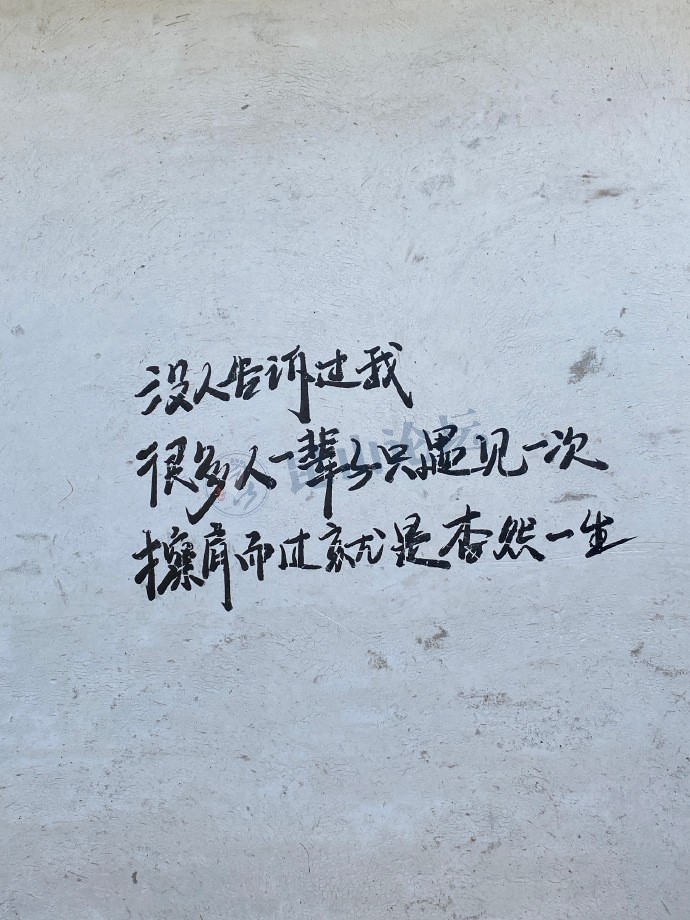 没人告诉过我
很多人一辈子只遇见一次
擦肩而过就是杳然一生